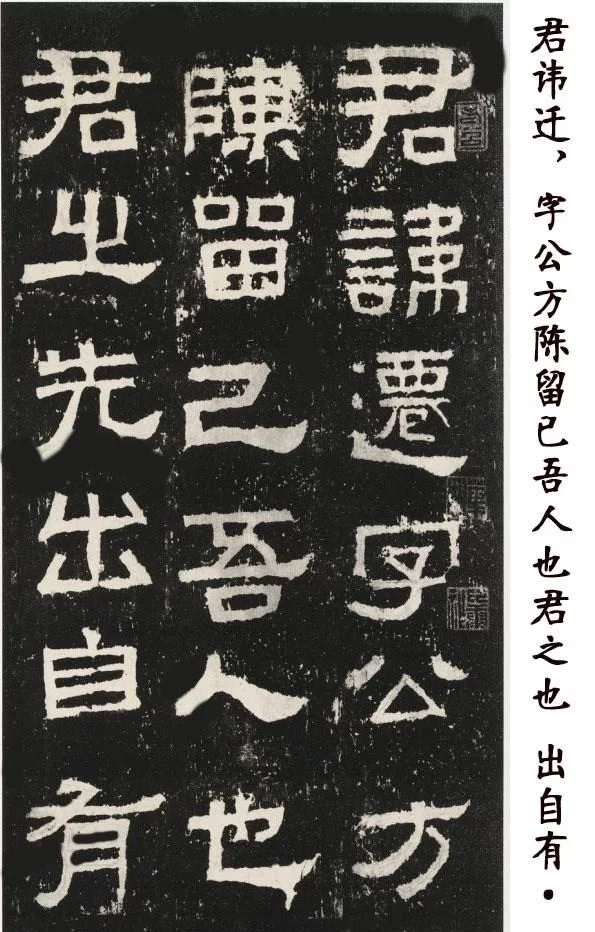 君讳迁，字公方陈留已吾人也君之也 出自有.
君諱遷字公方
陳留己吾人也
君之先出自有